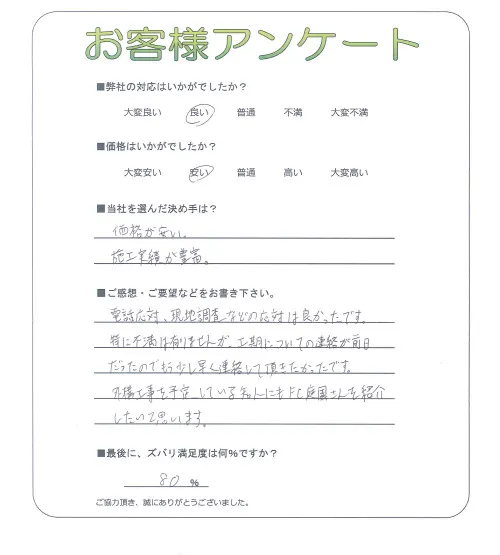 お客様アンケート
■弊社の対応はいかがでしたか？
大変良い 良い 普通 不満 大変不満
■価格はいかがでしたか？
大変安い 安い 普通 高い 大変高い
■当社を選んだ決め手は？
価格が安い。
施工実績が豊富。
■ご感想・ご要望などをお書き下さい。
電話応対、現地調査などの応対は良かったです。
特に不満は有りませんが、工期についての連絡が前日
だったのでもう少し早く連絡して頂きたかったです。
外構工事を予定している知人にもFC庭園さんを紹介
したいと思います。
■最後に、ズバリ満足度は何%ですか？
80 %
ご協力頂き、誠にありがとうございました。